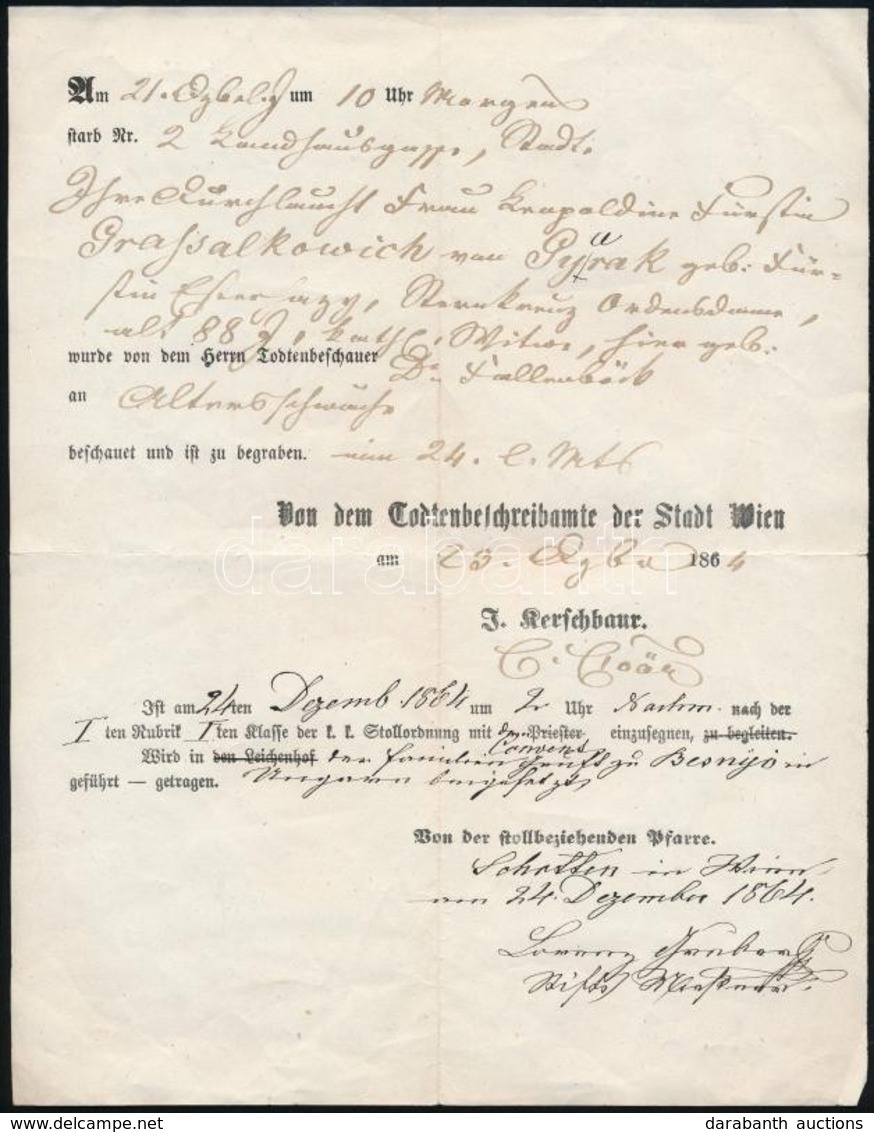 Am 21. Xbr l. J. um 10 Uhr Morgens
starb Nr. 2 Landhausgasse, Stadt.
Ihre Durchlaucht Frau Leopoldine Fürstin
Grassalkowich von Gyarak geb: Für-
stin Eszterhazy, Sternkreuz Ordensdame,
alt 88 J, kath, Witwe, hier geb:
wurde von dem Herrn Todtenbeschauer Dr Fallenböck
an Altersschwäche
beschauet und ist zu begraben. am 24. l. Mts
Von dem Todtenbeschreibamte der Stadt Wien
am 23. Xber 1864
J. Kerschbaur.
Ist am 24ten Dezemb. 1864 um 2 Uhr Nachm. nach der
I ten Rubrik I ten Klasse der k. k. Stollordnung mit dem Priester Convent einzusegnen, zu begleiten.
Wird in den Leichenhof der Familien Gruft zu Besnyö in
geführt — getragen. Ungarn beigesetzt
Von der stollbeziehenden Pfarre.
Schotten in Wien
am 24. Dezember 1864.
Lorenz Gruber
Stifts Messner.
darabanth
darabanth auctions